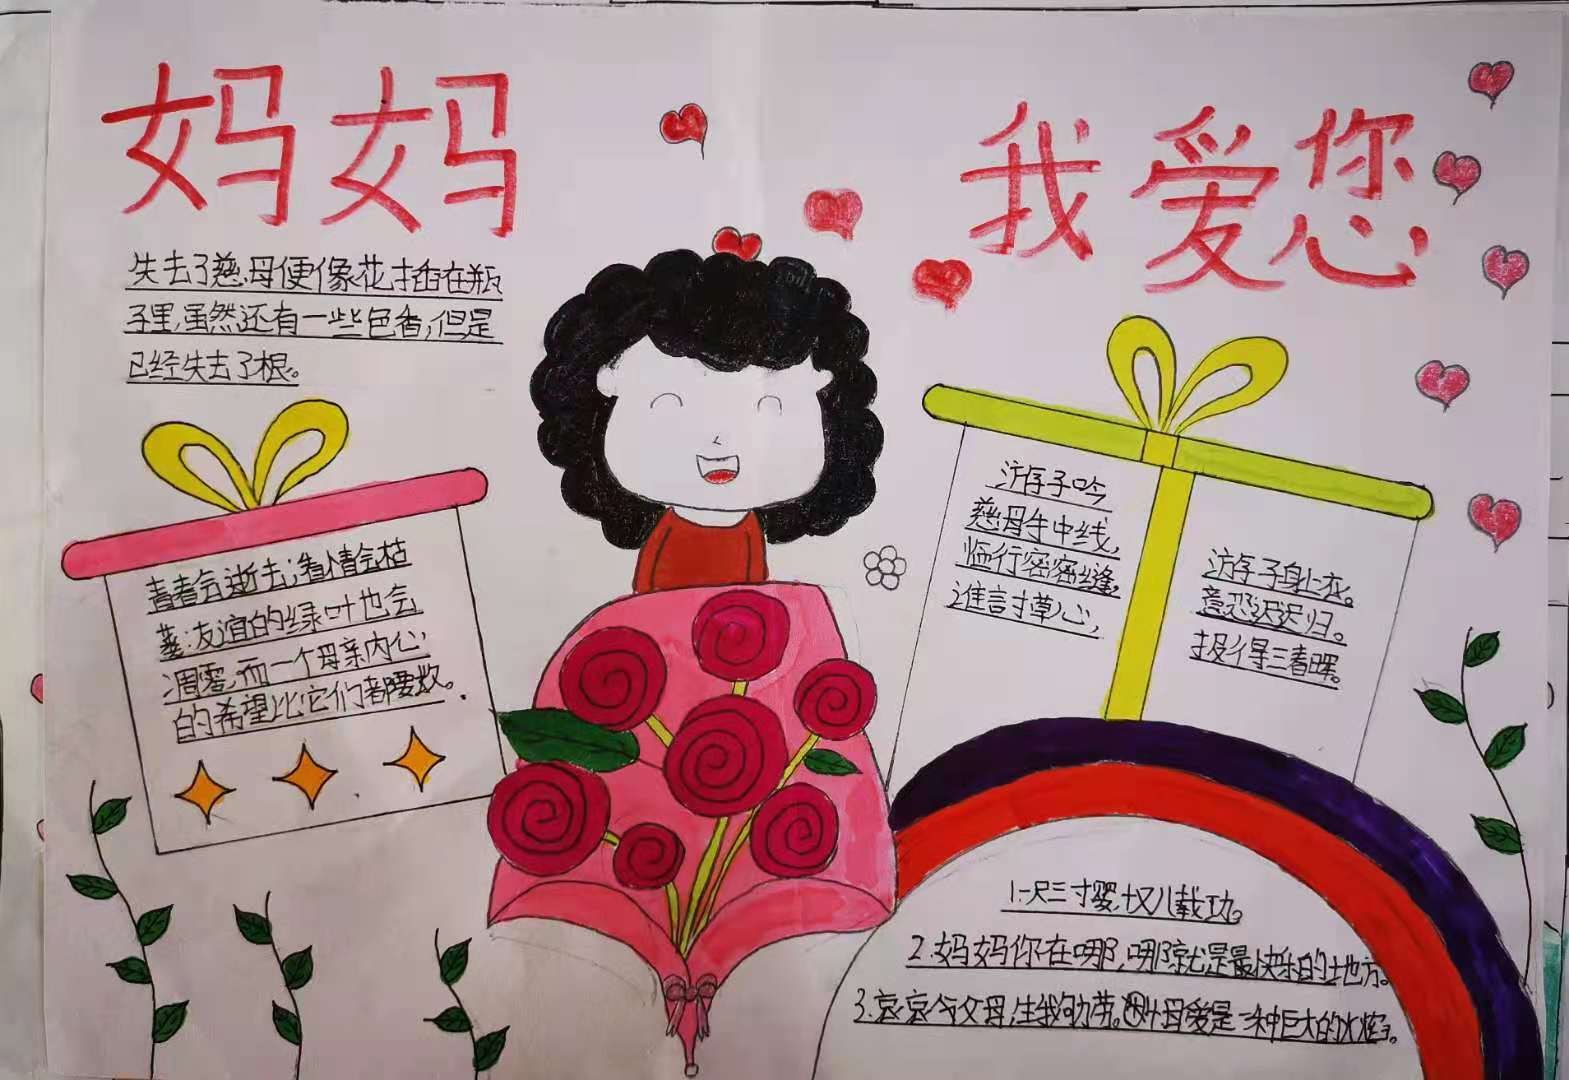 妈妈 我爱您
失去了慈母便像花插在瓶
子里,虽然还有一些色香,但是
已经失去了根。
青春会逝去;爱情会枯
萎;友谊的绿叶也会
凋零,而一个母亲内心
的希望比它们都要
游子吟
慈母手中线,
临行密密缝,
谁言寸草心,
游子身上衣。
意恐迟迟归。
报得三春晖。
1.一尺三寸婴,十又八载功。
2.妈妈你在哪,哪就是最快乐的地方。
3.哀哀父母,生我劬劳。 母爱是一种巨大的火焰。